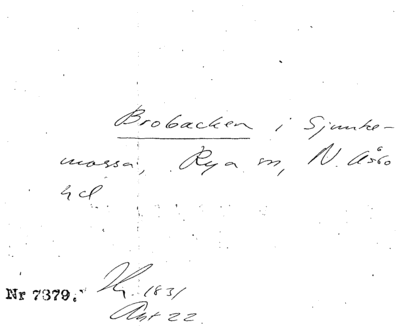 Brobacken i Sjunke-
mossa, Rya sn, N. Åsbo
hd
Nr 7379. 1831
Akt 22.